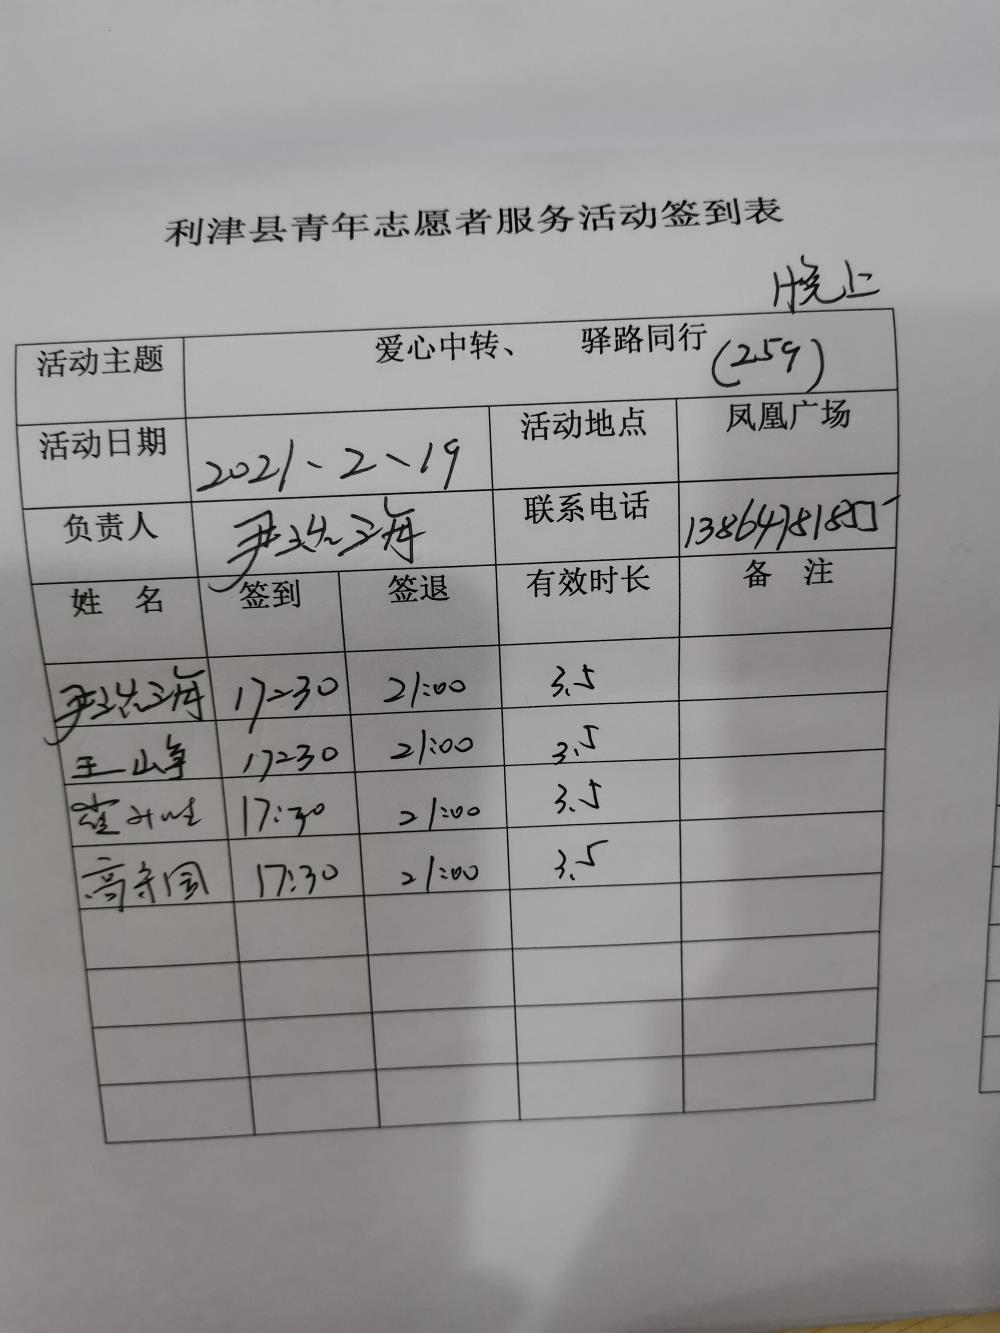 利津县青年志愿者服务活动签到表
晚上
活动主题 爱心中转、 驿路同行 (259)
活动日期 2021、2、19 活动地点 凤凰广场
负责人 尹洪海 联系电话 13864781855
姓 名 签到 签退 有效时长 备 注
尹洪海 17:30 21:00 3.5
王山军 17:30 21:00 3.5
17:30 21:00 3.5
高守国 17:30 21:00 3.5